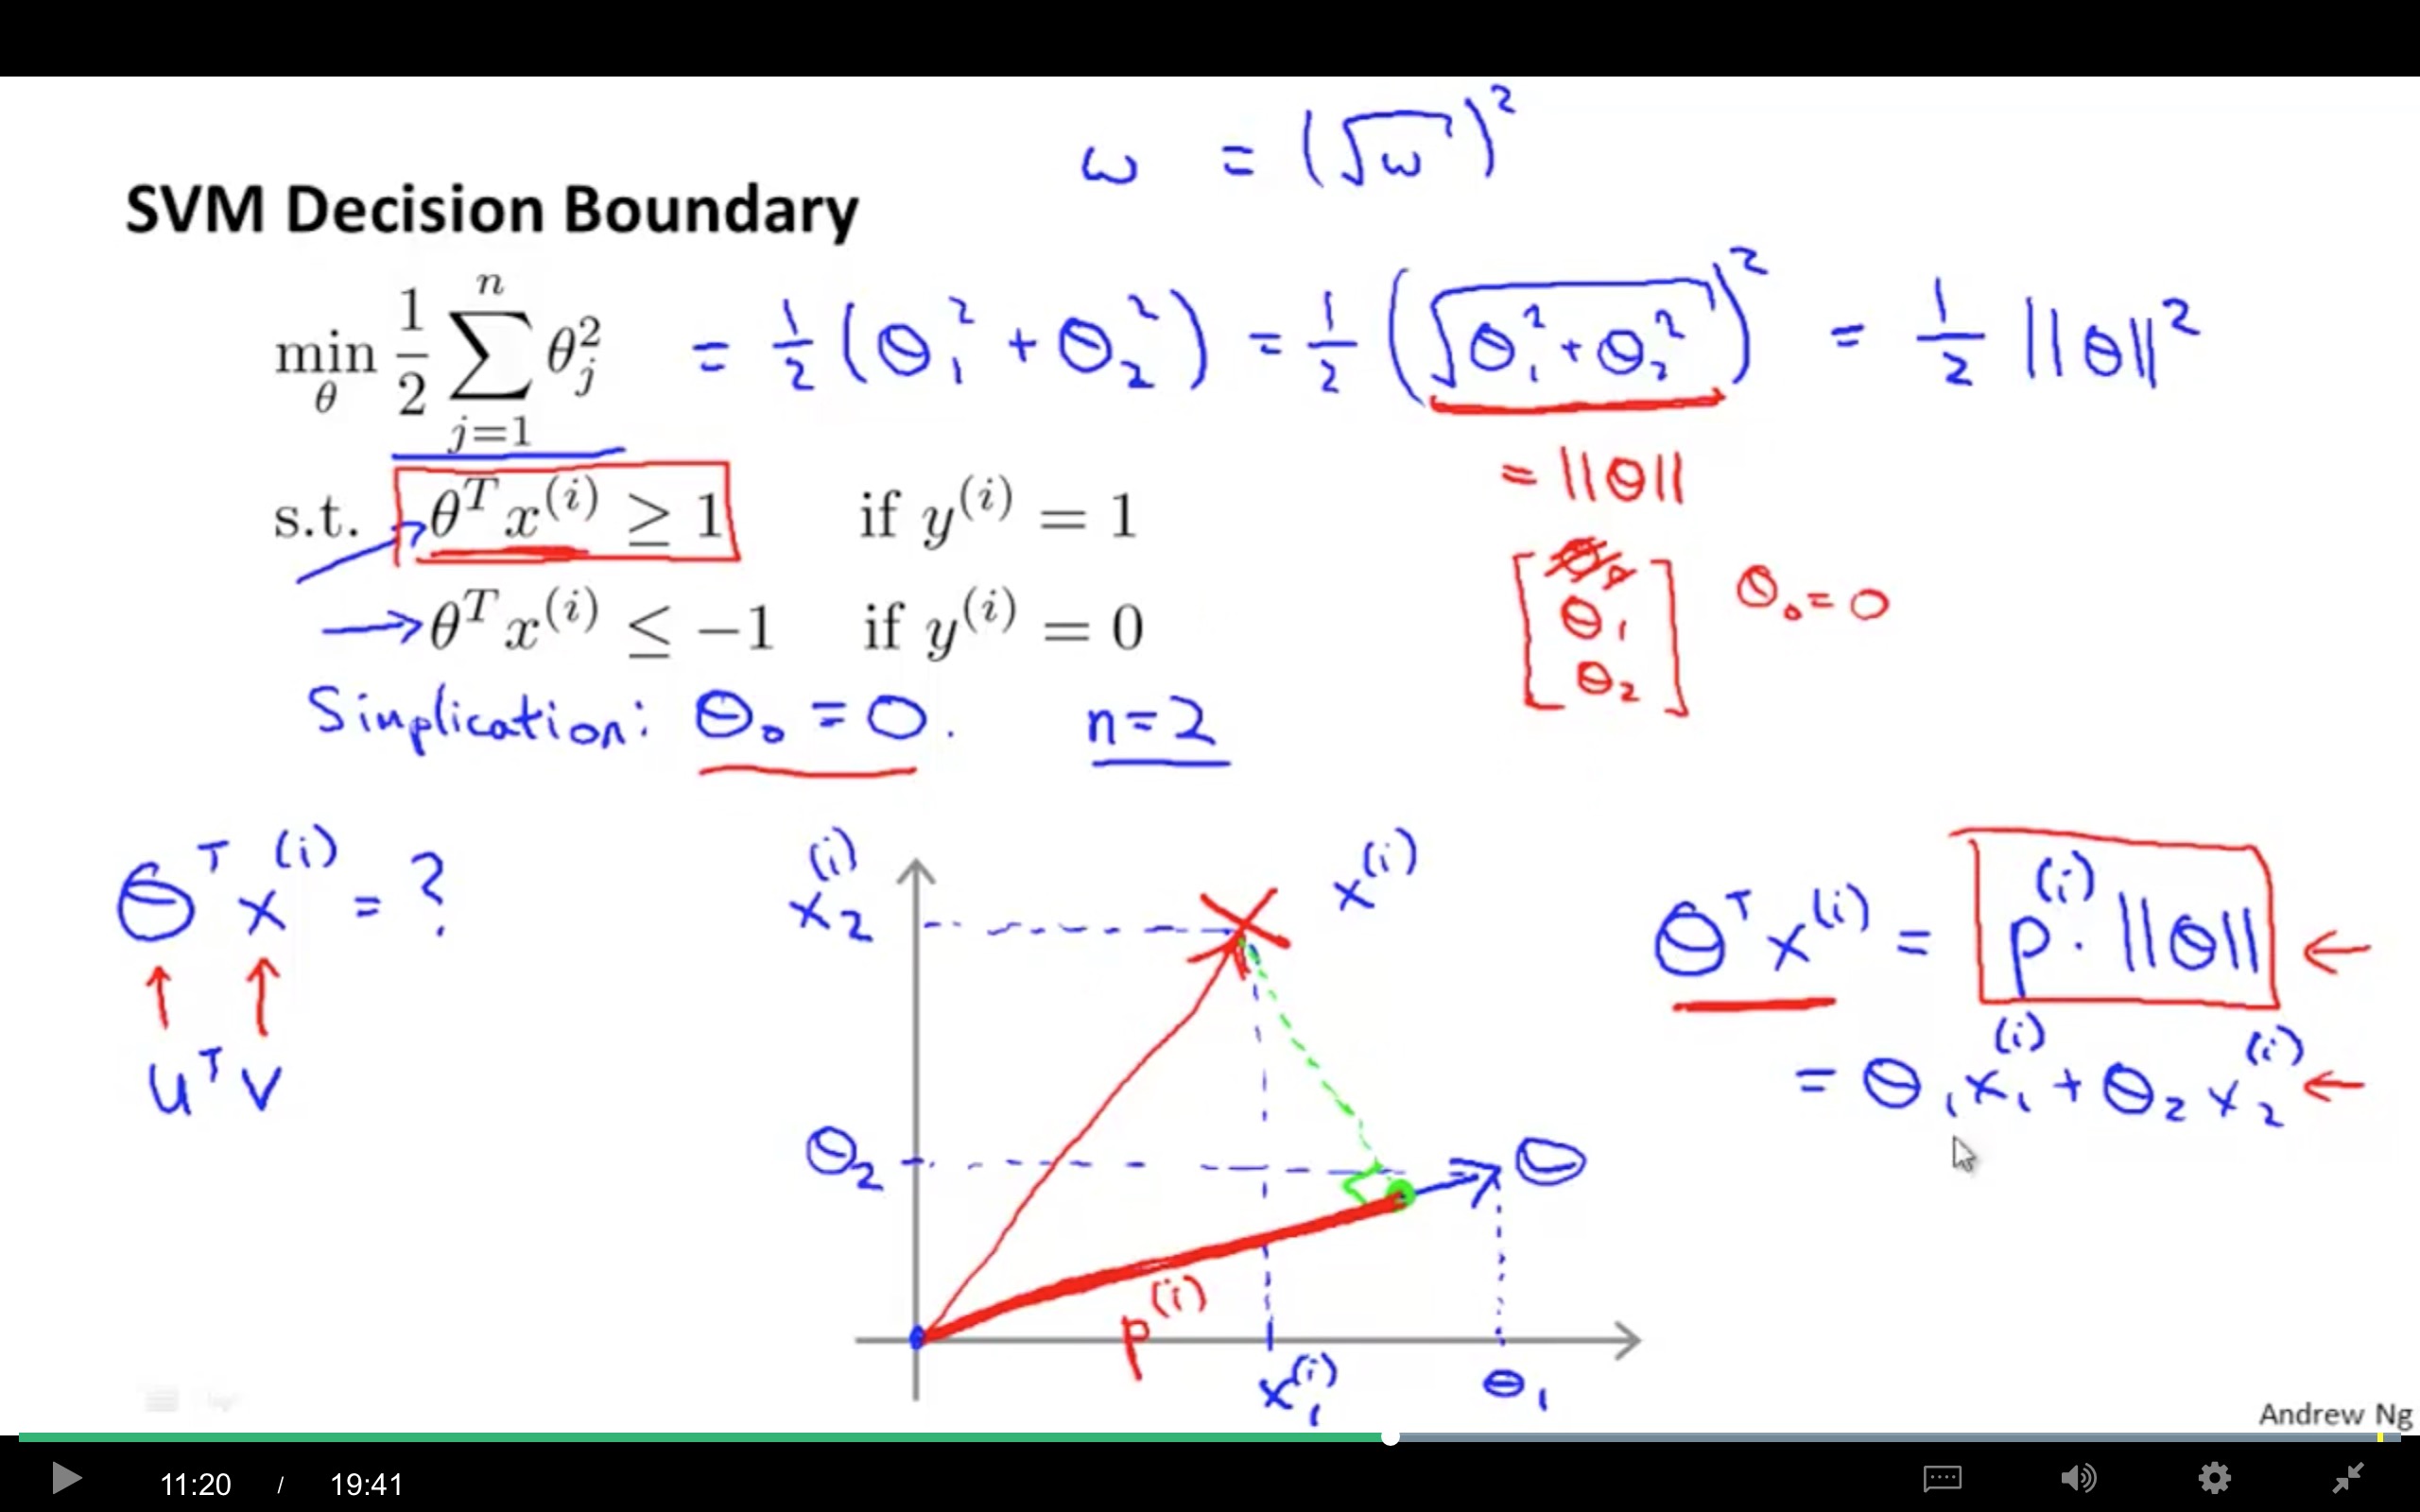 ω = (√ω)²
SVM Decision Boundary
min_θ 1/2 ∑_{j=1}^{n} θ_j² = 1/2 (θ₁² + θ₂²) = 1/2 (√(θ₁² + θ₂²))² = 1/2 ||θ||²
= ||θ||
s.t. θᵀx⁽ⁱ⁾ ≥ 1 if y⁽ⁱ⁾ = 1
θᵀx⁽ⁱ⁾ ≤ −1 if y⁽ⁱ⁾ = 0
[θ₀ θ₁ θ₂] θ₀ = 0
Simplication: θ₀ = 0. n=2
θᵀx⁽ⁱ⁾ = ?
uᵀv
x₂⁽ⁱ⁾
x⁽ⁱ⁾
θ₂
θ
p⁽ⁱ⁾
x₁⁽ⁱ⁾
θ₁
θᵀx⁽ⁱ⁾ = p⁽ⁱ⁾ · ||θ|| ←
= θ₁x₁⁽ⁱ⁾ + θ₂x₂⁽ⁱ⁾ ←
Andrew Ng
11:20 / 19:41